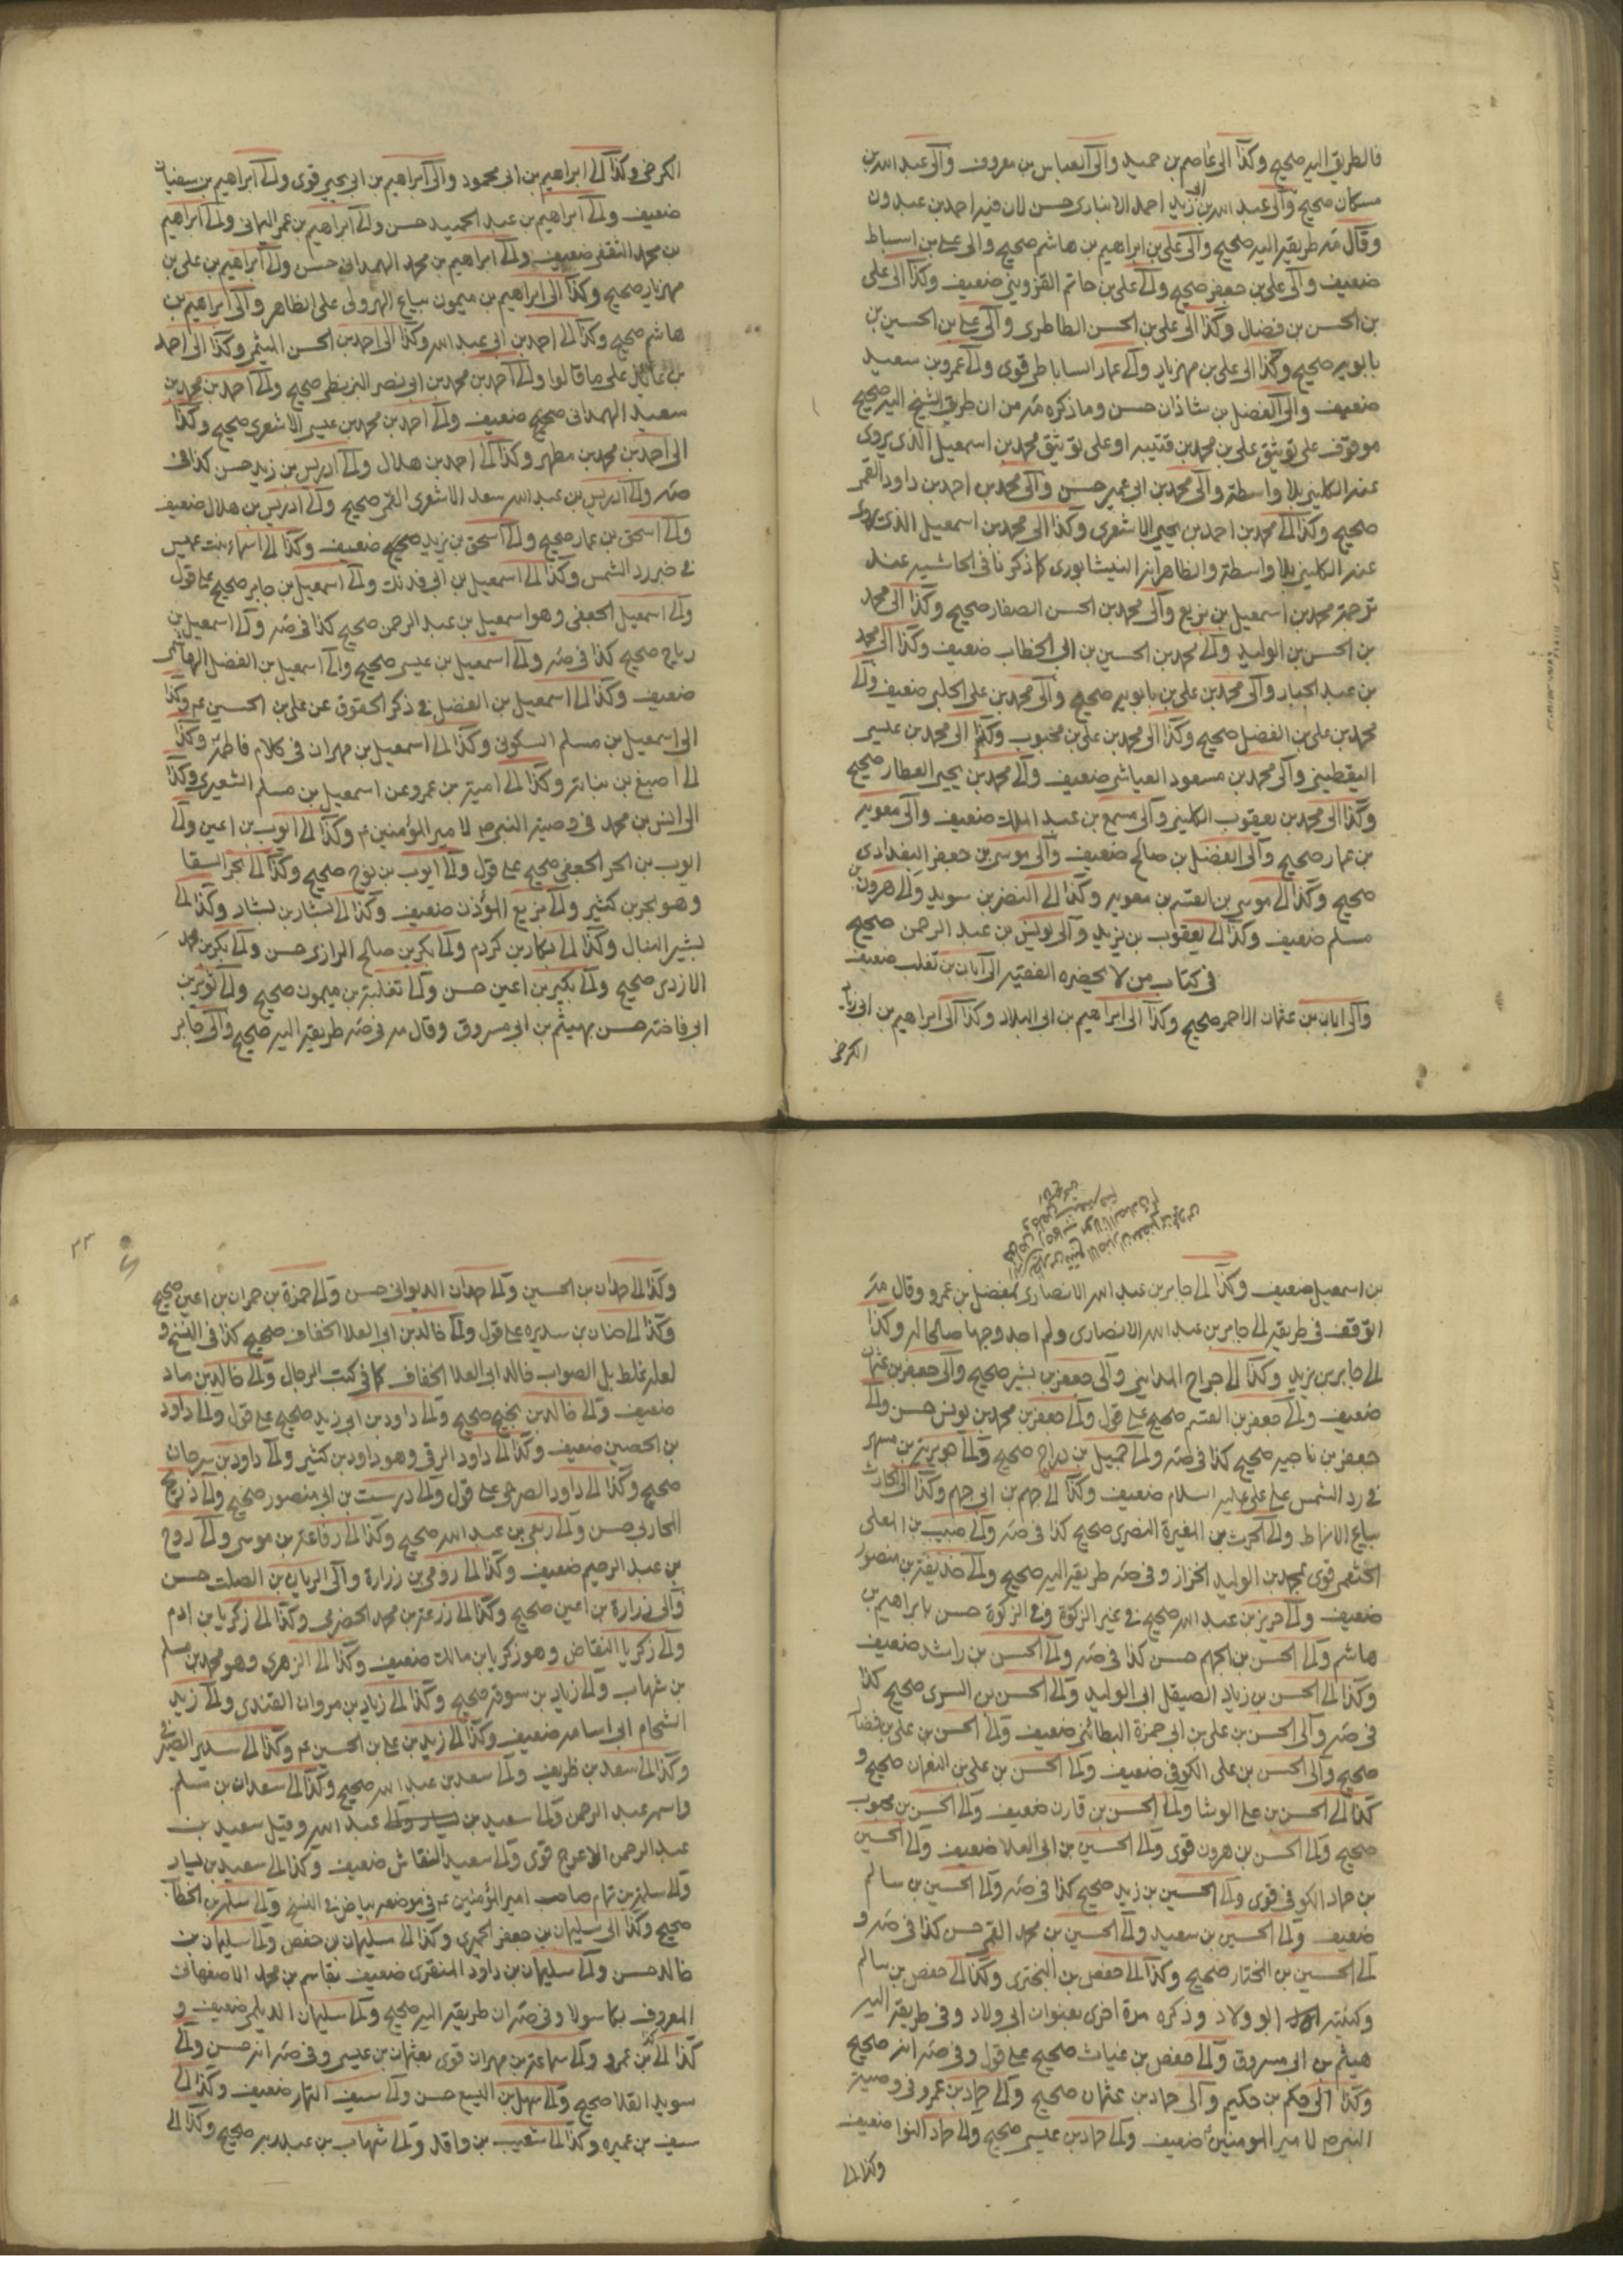 فالطريق اليه صحيح وكذا الى عاصم بن حميد والى العباس بن معروف والى عبد الله بن
مسكان صحيح والى عبد الله بن ابى زيد احمد الانبارى حسن لان فيه احمد بن عبدون
وقال مه طريقه اليه صحيح والى على بن ابراهيم بن هاشم صحيح والى على بن اسباط
ضعيف والى على بن جعفر صحيح والى على بن حاتم القزوينى ضعيف وكذا الى على
بن الحسن بن فضال وكذا الى على بن الحسن الطاطرى والى على بن الحسين بن
بابويه صحيح وكذا الى على بن مهزيار والى عمار الساباطى قوى والى عمرو بن سعيد
ضعيف والى الفضل بن شاذان حسن وما ذكره مه من ان طريق الشيخ اليه صحيح
موقوف على توثيق على بن محمد بن قتيبه او على توثيق محمد بن اسمعيل الذى يروى
عنه الكلينى بلا واسطة والى محمد بن ابى عمير حسن والى محمد بن احمد بن داود القمى
صحيح وكذا الى محمد بن احمد بن يحيى الاشعرى وكذا الى محمد بن اسمعيل الذى يروى
عنه الكلينى بلا واسطة والظاهر انه النيشابورى كما ذكرنا فى الحاشيه عند
ترجمة محمد بن اسمعيل بن بزيع والى محمد بن الحسن الصفار صحيح وكذا الى محمد
بن الحسن بن الوليد والى محمد بن الحسين بن ابى الخطاب ضعيف وكذا الى محمد
بن عبد الجبار والى محمد بن على بن بابويه صحيح والى محمد بن على الحلبى ضعيف والى
محمد بن على بن الفضل صحيح وكذا الى محمد بن على بن محبوب وكذا الى محمد بن عيسى
اليقطينى والى محمد بن مسعود العياشى ضعيف والى محمد بن يحيى العطار صحيح
وكذا الى محمد بن يعقوب الكلينى والى مسمع بن عبد الملك ضعيف والى معويه
بن عمار صحيح والى الفضل بن صالح ضعيف والى موسى بن جعفر البغدادى
صحيح وكذا الى موسى بن القسم بن معويه وكذا الى النضر بن سويد والى هرون بن
مسلم ضعيف وكذا الى يعقوب بن يزيد والى يونس بن عبد الرحمن صحيح
فى كتاب من لا يحضره الفقيه الى ابان بن تغلب ضعيف
والى ابان بن عثمان الاحمر صحيح وكذا الى ابراهيم بن ابى البلاد وكذا الى ابراهيم بن ابى زياد
الكرخى
الكرخى وكذا الى ابراهيم بن ابى محمود والى ابراهيم بن ابى يحيى قوى والى ابراهيم بن سفيان
ضعيف والى ابراهيم بن عبد الحميد حسن والى ابراهيم بن عمر اليمانى والى ابراهيم
بن محمد الثقفى ضعيف والى ابراهيم بن محمد الهمدانى حسن والى ابراهيم بن على بن
مهزيار صحيح وكذا الى ابراهيم بن ميمون بياع الهروى على الظاهر والى ابراهيم بن
هاشم صحيح وكذا الى احمد بن ابى عبد الله وكذا الى احمد بن الحسن الميثمى وكذا الى احمد
بن عائذ على ما قالوا والى احمد بن محمد بن ابى نصر البزنطى صحيح والى احمد بن محمد بن
سعيد الهمدانى صحيح ضعيف والى احمد بن محمد بن عيسى الاشعرى صحيح وكذا
الى احمد بن محمد بن مطهر وكذا الى احمد بن هلال والى ادريس بن زيد حسن كذا فى
مه والى ادريس بن عبد الله سعد الاشعرى القمى صحيح والى ادريس بن هلال ضعيف
والى اسحق بن عمار صحيح والى اسحق بن يزيد صحيح ضعيف وكذا الى اسماء بنت عميس
فى خبر رد الشمس وكذا الى اسمعيل بن ابى فديك والى اسمعيل بن جابر صحيح على قول
والى اسمعيل الجعفى وهو اسمعيل بن عبد الرحمن صحيح كذا فى مه والى اسمعيل بن
رباح صحيح كذا فى مه والى اسمعيل بن عيسى صحيح والى اسمعيل بن الفضل الهاشمى
ضعيف وكذا الى اسمعيل بن الفضل فى ذكر الحقوق عن على بن الحسين عم وكذا
الى اسمعيل بن مسلم السكونى وكذا الى اسمعيل بن مهران فى كلام فاطمة وكذا
الى اصبغ بن نباتة وكذا الى امية بن عمرو عن اسمعيل بن مسلم الشعيرى وكذا
الى انس بن محمد فى وصية النبى ص لامير المؤمنين ع وكذا الى ايوب بن اعين والى
ايوب بن الحر الجعفى صحيح على قول والى ايوب بن نوح صحيح وكذا الى بحر السقا
وهو بحر بن كثير والى بزيع المؤذن ضعيف وكذا الى بشار بن بشار وكذا الى
بشير النبال وكذا الى بكار بن كردم والى بكر بن صالح الرازى حسن والى بكر بن محمد
الازدى صحيح والى بكير بن اعين حسن والى ثعلبة بن ميمون صحيح والى ثوير بن
ابى فاخته حسن بهيثم بن ابى مسروق وقال مه فى مه طريقه اليه صحيح والى جابر
بن اسمعيل ضعيف وكذا الى جابر بن عبد الله الانصارى بمفضل بن عمرو وقال مه
التوقف فى طريقه الى جابر بن عبد الله الانصارى ولم اجد وجها صالحا له وكذا
الى جابر بن يزيد وكذا الى جراح المداينى والى جعفر بن بشير صحيح والى جعفر بن عثمان
ضعيف والى جعفر بن القسم صحيح على قول والى جعفر بن محمد بن يونس حسن والى
جعفر بن ناجيه صحيح كذا فى مه والى جميل بن دراج صحيح والى جويرية بن مسهر
فى رد الشمس على على عليه السلام ضعيف وكذا الى جهم بن ابى جهم وكذا الى الحارث
بياع الانماط والى الحرث بن المغيرة النصرى صحيح كذا فى مه والى حبيب بن المعلى
الخثعمى قوى بمحمد بن الوليد الخزاز وفى مه طريقه اليه صحيح والى حذيفة بن منصور
ضعيف والى حريز بن عبد الله صحيح فى غير الزكوة وفى الزكوة حسن بابراهيم بن
هاشم والى الحسن بن الجهم حسن كذا فى مه والى الحسن بن راشد ضعيف
وكذا الى الحسن بن زياد الصيقل ابى الوليد والى الحسن بن السرى صحيح كذا
فى مه والى الحسن بن على بن ابى حمزة البطائنى ضعيف والى الحسن بن على بن فضال
صحيح والى الحسن بن على الكوفى ضعيف والى الحسن بن على بن النعمان صحيح و
كذا الى الحسن بن على الوشا والى الحسن بن قارن ضعيف والى الحسن بن محبوب
صحيح والى الحسن بن هرون قوى والى الحسين بن ابى العلا ضعيف والى الحسين
بن حماد الكوفى قوى والى الحسين بن زيد صحيح كذا فى مه والى الحسين بن سالم
ضعيف والى الحسين بن سعيد والى الحسين بن محمد القمى حسن كذا فى مه و
الى الحسين بن المختار صحيح وكذا الى حفص بن البخترى وكذا الى حفص بن سالم
وكنيته ابو ولاد وذكره مرة اخرى بعنوان ابى ولاد وفى طريقه اليه
هيثم بن ابى مسروق والى حفص بن غياث صحيح على قول وفى مه انه صحيح
وكذا الى حكم بن حكيم والى حماد بن عثمان صحيح والى حماد بن عمرو فى وصية
النبى ص لامير المومنين ع ضعيف والى حماد بن عيسى صحيح والى حماد النوا ضعيف
وكذا الى
٢٣
وكذا الى حمدان بن الحسين والى حمدان الديوانى حسن والى حمزة بن حمران بن اعين صحيح
وكذا الى حنان بن سديره على قول والى خالد بن ابى العلا الخفاف صحيح كذا فى النسخ و
لعله غلط بل الصواب خالد ابى العلا الخفاف كما فى كتب الرجال والى خالد بن ماد
ضعيف والى خالد بن نجيح صحيح والى داود بن ابى زيد صحيح على قول والى داود
بن الحصين ضعيف وكذا الى داود الرقى وهو داود بن كثير والى داود بن سرحان
صحيح وكذا الى داود الصرمى على قول والى درست بن ابى منصور صحيح والى ذريح
المحاربى حسن والى ربعى بن عبد الله صحيح وكذا الى رفاعة بن موسى والى روح
بن عبد الرحيم ضعيف وكذا الى رومى بن زرارة والى الريان بن الصلت حسن
والى زرارة بن اعين صحيح وكذا الى زرعة بن محمد الحضرمى وكذا الى زكريا بن ادم
والى زكريا النقاض وهو زكريا بن مالك ضعيف وكذا الى الزهرى وهو محمد بن مسلم
بن شهاب والى زياد بن سوقه صحيح وكذا الى زياد بن مروان القندى والى زيد
الشحام ابى اسامه ضعيف وكذا الى زيد بن على بن الحسين عم وكذا الى سدير الصيرفى
وكذا الى سعد بن طريف والى سعد بن عبد الله صحيح وكذا الى سعدان بن مسلم
واسمه عبد الرحمن والى سعيد بن عبد الله وقيل سعيد بن
عبد الرحمن الاعرج قوى والى سعيد النقاش ضعيف وكذا الى سعيد بن يسار
والى سلمة بن تمام صاحب امير المؤمنين عم فى موضعه بياض فى النسخ والى سلمة بن الخطاب
صحيح وكذا الى سليمان بن جعفر الحميرى وكذا الى سليمان بن حفص والى سليمان بن
خالد حسن والى سليمان بن داود المنقرى ضعيف بقاسم بن محمد الاصفهانى
المعروف بكاسولا وفى مه ان طريقه اليه صحيح والى سليمان الديلمى ضعيف و
كذا الى بن عمرو والى سماعة بن مهران قوى بعثمان بن عيسى وفى مه انه حسن والى
سويد القلا صحيح والى سهل بن اليسع حسن والى سيف التمار ضعيف وكذا الى
سيف بن عميره وكذا الى شعيب بن واقد والى شهاب بن عبد ربه صحيح وكذا الى